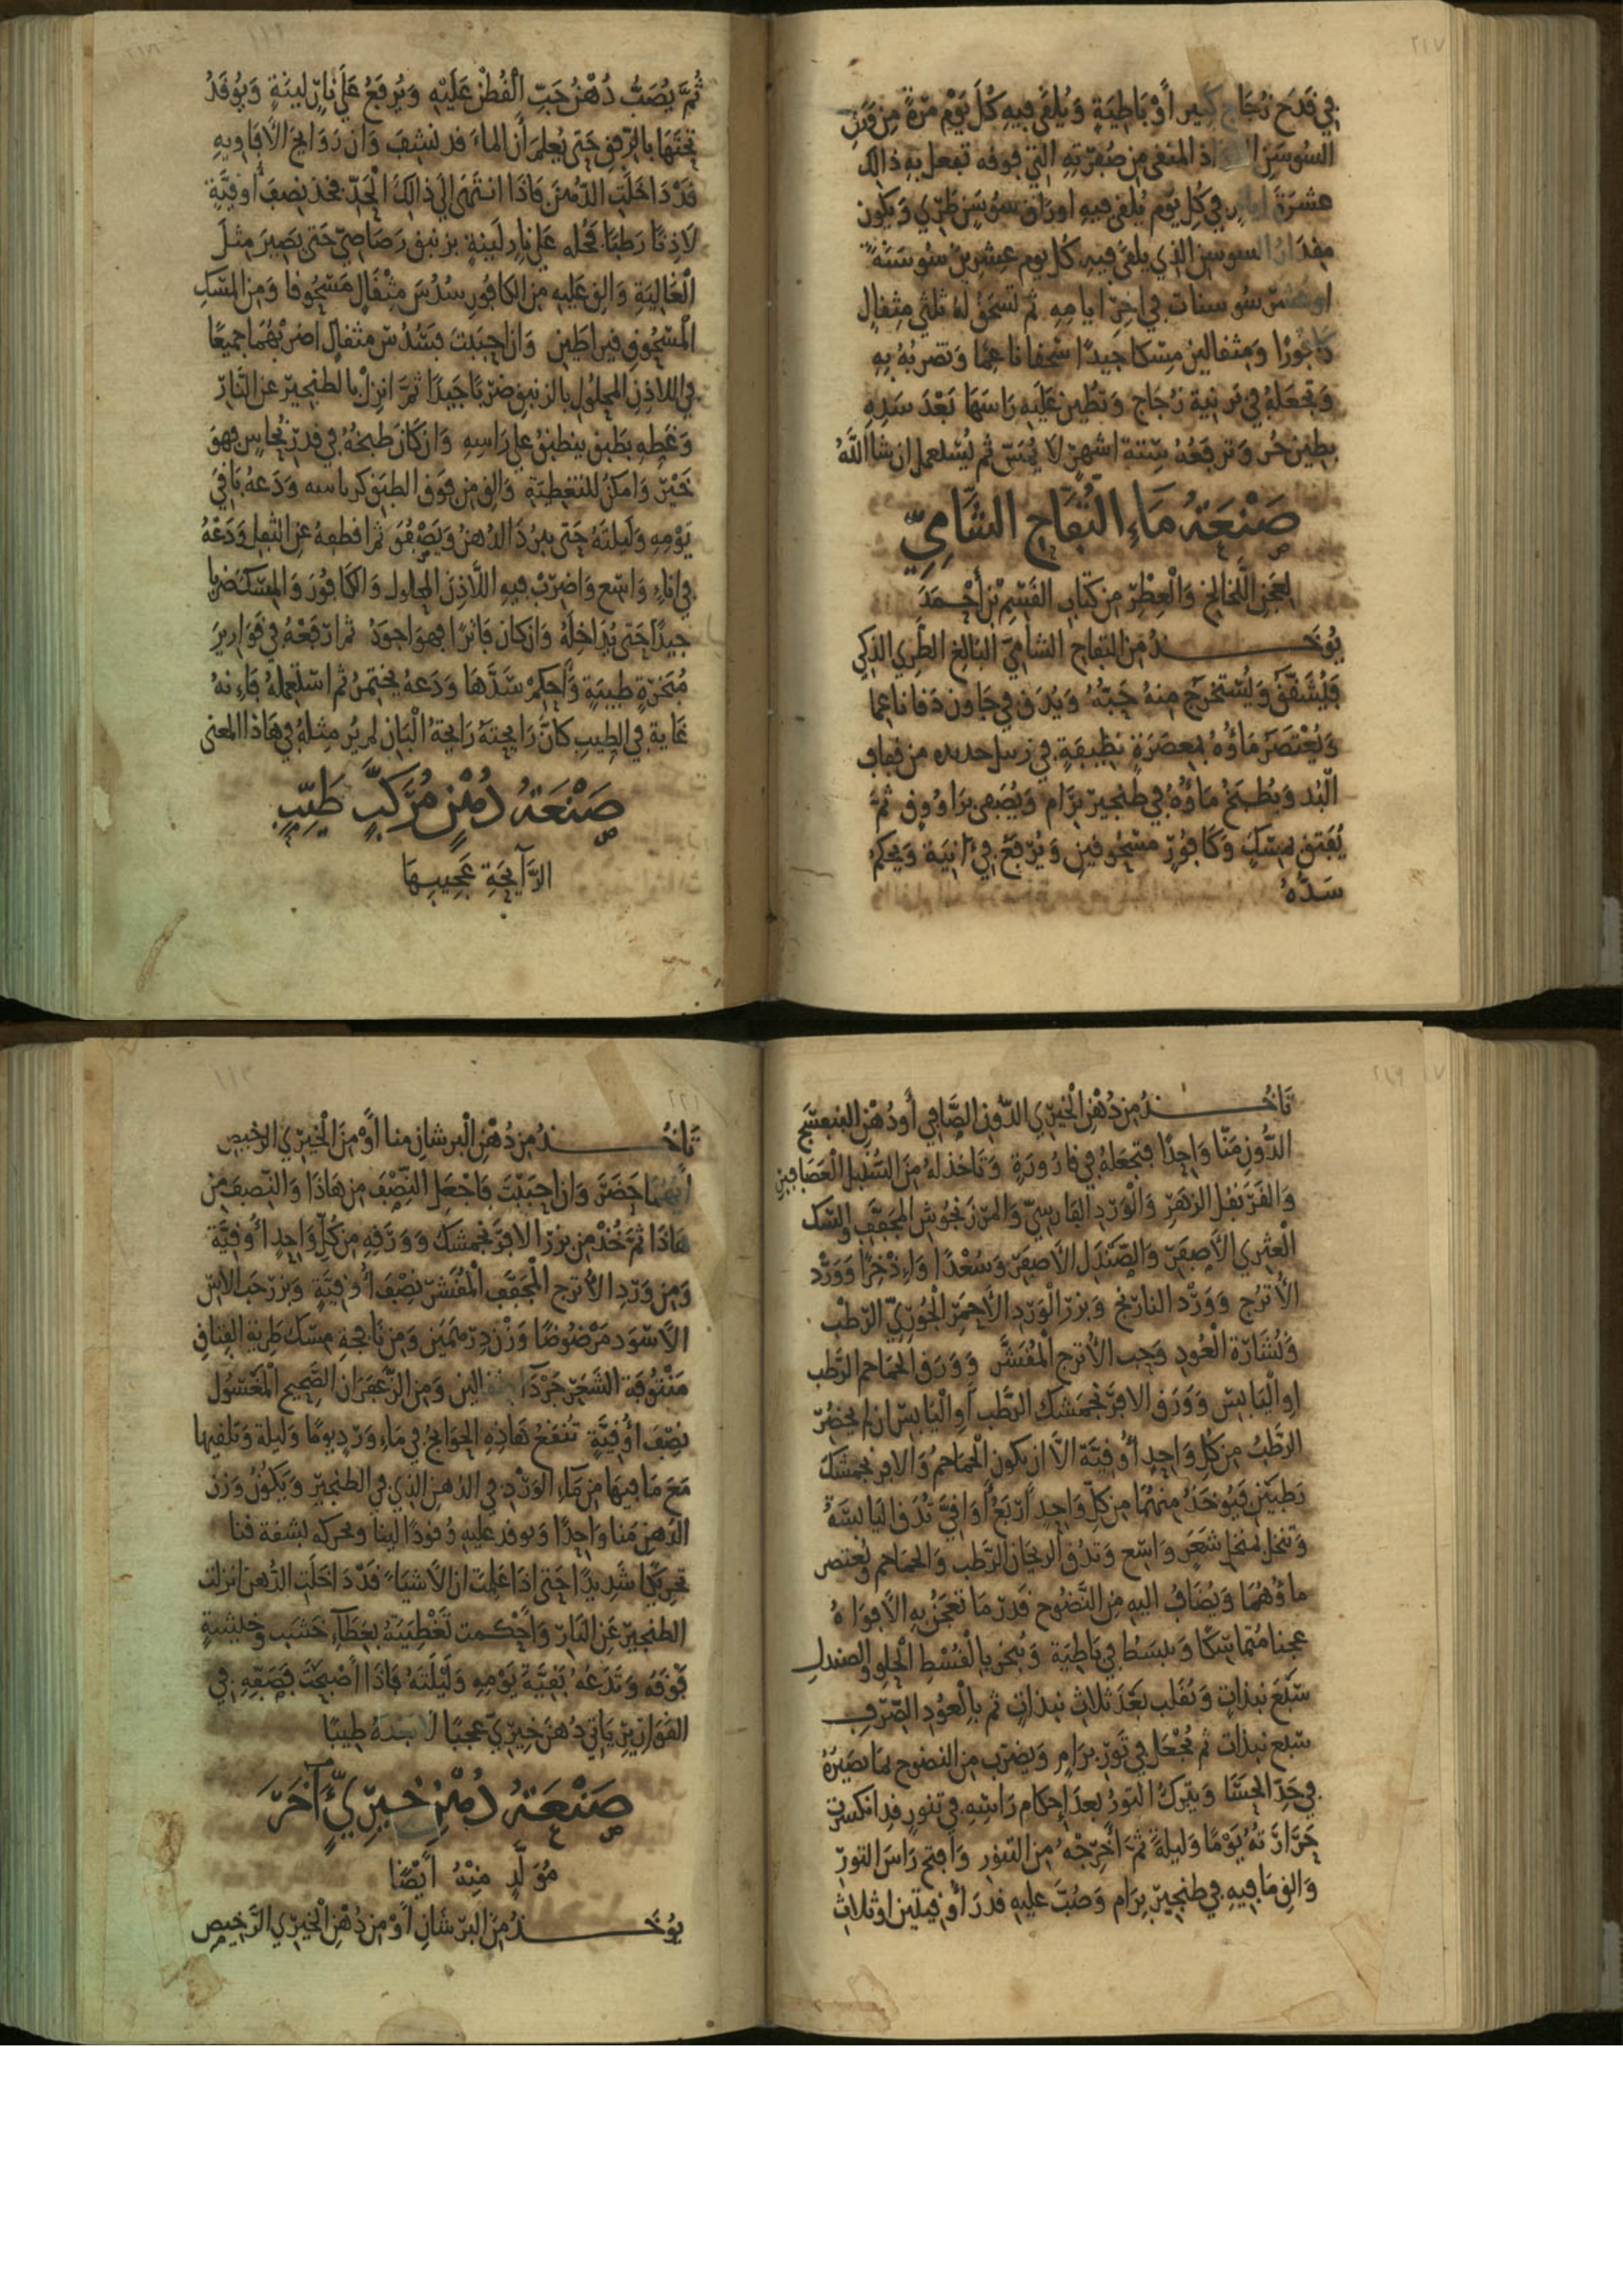 في قدح زجاج كبير أو باطية ويلقى فيه كل يوم مرة من ورق
السوسن المنقى من صفرته التي فوقه تفعل به ذالك
عشرة ايام في كل يوم يلقى فيه اوراق سوسن طري ويكون
مقدار السوسن الذي يلقى فيه كل يوم عشرين سوسنة
او عشر سوسنات في اخر ايامه ثم تسحق له ثلثي مثقال
كافورا ومثقالين مسكا جيدا سحقا ناعما وتضربه به
وتجعله في برنية زجاج وتطين عليه راسها بعد سده
بطين حر وترفعه ستة اشهر لا يمس ثم يستعمل ان شا الله
صنعة ماء التفاح الشامي
لعجن اللخالخ والعطر من كتاب القسم بن أحمد
يوخذ من التفاح الشامي البالغ الطري الذكي
فيشقق ويستخرج منه حبه ويدق في جاون دقا ناعما
ويعتصر ماؤه بمعصرة نظيفة في زبيل جديده من قفاف
البد ويطبخ ماؤه في طنجير برام ويصفى براووق ثم
يفتق بمسك وكافور مسحوقين ويرفع في انية ويحكم
سده
ثم يصب دهن حب القطن عليه ويرفع على نار لينة ويوقد
تحتها بالرفق حتى يعلم أن الماء قد نشف وان روايح الأفاويه
قد داخلت الدهن فاذا انتهى إلى ذالك الحد فخذ نصف أوقية
لاذنا رطبا فحله على نار لينة بزنبق رصاصي حتى يصير مثل
الغالية والق عليه من الكافور سدس مثقال مسحوقا ومن المسك
المسحوق قيراطين وان احببت فسدس مثقال اضربهما جميعا
في اللاذن المحلول بالزنبق ضربا جيدا ثم انزل بالطنجير عن النار
وغطه بطبق ينطبق على راسه وان كان طبخه في قدر نحاس فهو
خير وامكن للتغطية والق من فوق الطبق كرباسه ودعه باقي
يومه وليلته حتى يبرد الدهن ويصفو ثم اقطعه عن الثفل ودعه
في اناء واسع واضرب فيه اللاذن المحلول والكافور والمسك ضربا
جيدا حتى يداخله وان كان فاترا فهو اجود ثم ارفعه في قوارير
مبخرة طيبة وأحكم سدها ودعه يختمر ثم استعمله فاءنه
غاية في الطيب كان رايحته رايحة البان لم ير مثله في هاذا المعنى
صنعة دهن مركب طيب
الرآيحة عجيبها
تاخذ من دهن الخيري الدون الصافي أو دهن البنفسج
الدون منا واحدا فتجعله في قارورة وتاخذ له من السنبل العصافير
والقرنفل الزهر والورد الفارسي والمرزنجوش المجفف والسك
الأصفر والصندل الأصفر وسعدا واذخرا وورد
الأترج وورد النارنج وبزر الورد الأحمر الجوري الرطب
ونشارة العود وحب الأترج المقشر وورق الحماحم الرطب
او اليابس وورق الافرنجمشك الرطب أو اليابس ان لم يحضر
الرطب من كل واحد أوقية الا ان يكون الحماحم والافرنجمشك
رطبين فيوخذ منهما من كل واحد اربع أواقي تدق اليابسة
وتنخل بمنخل شعر واسع وتدق الريحان الرطب والحماحم ويعتصر
ماؤهما ويضاف اليه من النضوح قدر ما تعجن به الأفواه
عجنا متماسكا ويبسط في باطية ويبخر بالقسط الحلو والصندل
سبع نبذات وتقلب بعد ثلاث نبذات ثم بالعود الصرف
سبع نبذات ثم تجعل في تور برام ويضرب من النضوح بما يصيره
في حد الحسا ويترك التور بعد إحكام راسه في تنور قد انكسرت
حرارته يوما وليلة ثم أخرجه من التنور وافتح راس التور
والق ما فيه في طنجير برام وصب عليه قدر أوقيتين او ثلاث
تاخذ من دهن البرشان منا أو من الخيري الرخيص
أيهما حضر وان احببت فاجعل النصف من هاذا والنصف من
هاذا ثم خذ من بزر الافرنجمشك وورقه من كل واحد أوقية
ومن ورد الأترج المجفف المقشر نصف أوقية وبزر حب الاس
الأسود مرضوضا وزن درهمين ومن نافجة مسك طرية
منتوفة الشعر جردا مثقالين ومن الزعفران الصحيح المغسول
نصف أوقية تنقع هاذه الحوايج في ماء ورد يوما وليلة وتلقيها
مع ما فيها من ماء الورد في الدهن الذي في الطنجير ويكون وزن
الدهن منا واحدا ويوقد عليه وقودا لينا وتحركه بشقة قنا
تحريكا شديدا حتى اذا علمت ان الأشياء قد داخلت الدهن انزلت
الطنجير عن النار وأحكمت تغطيته بغطآء خشب وخليته
فوقه وتدعه بقية يومه وليلته فاذا أصبحت فصفه في
القوارير ياتي دهن خيري عجبا لا بعده طيبا
صنعة دهن خيري آخر
مولد منه أيضا
يوخذ من البرشان أو من دهن الخيري الرخيص